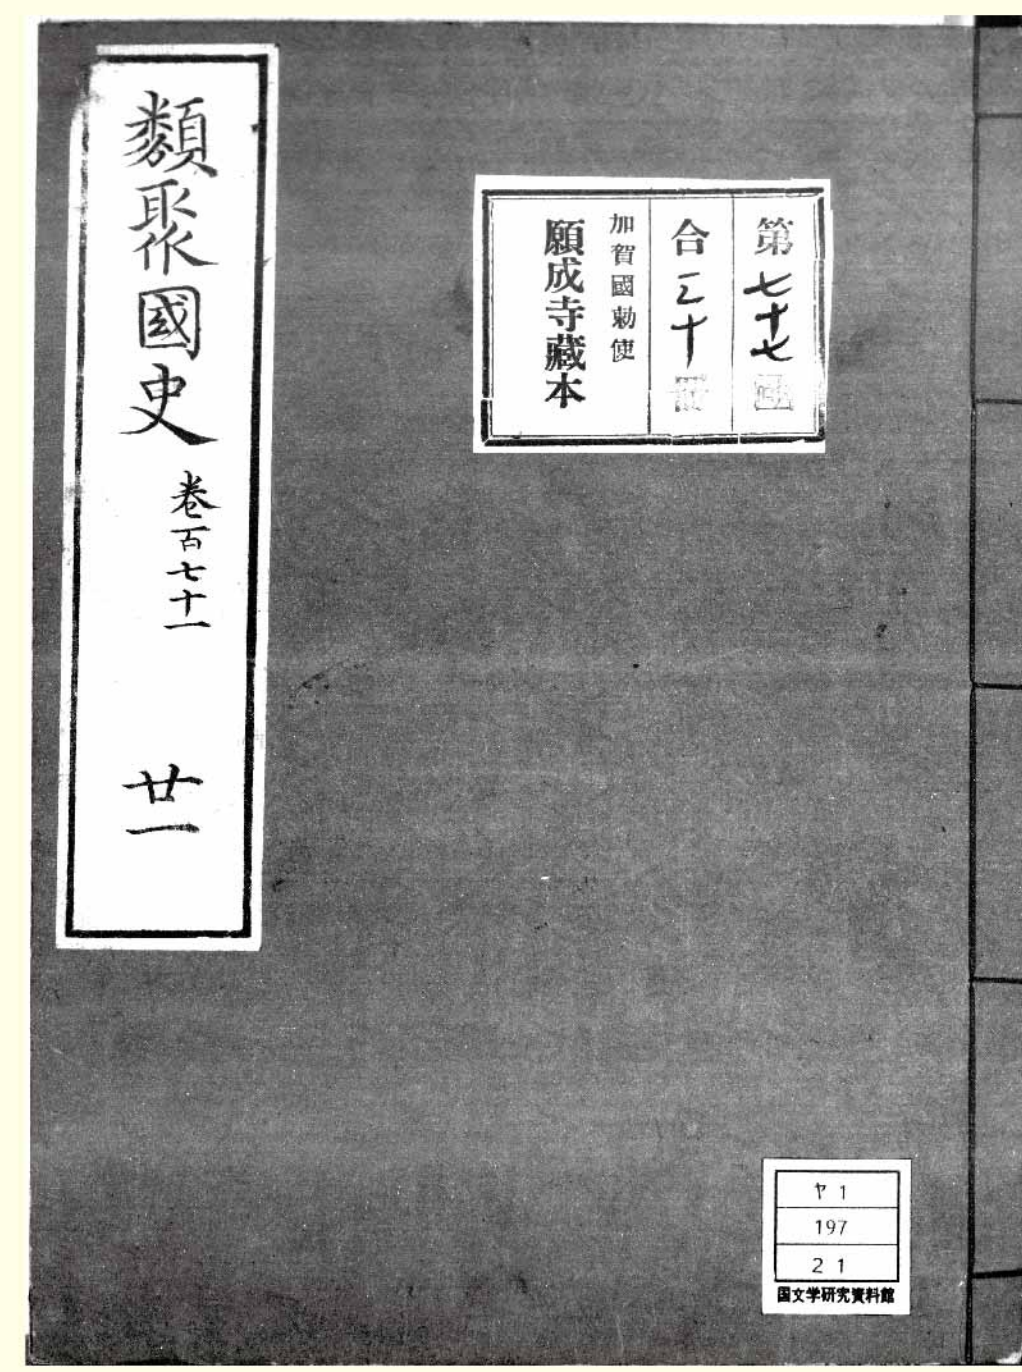 第七十七函
合三十冊
加賀國勅使
願成寺藏本
類聚國史 卷百七十一 廿一
ヤ1
197
21
国文学研究資料館